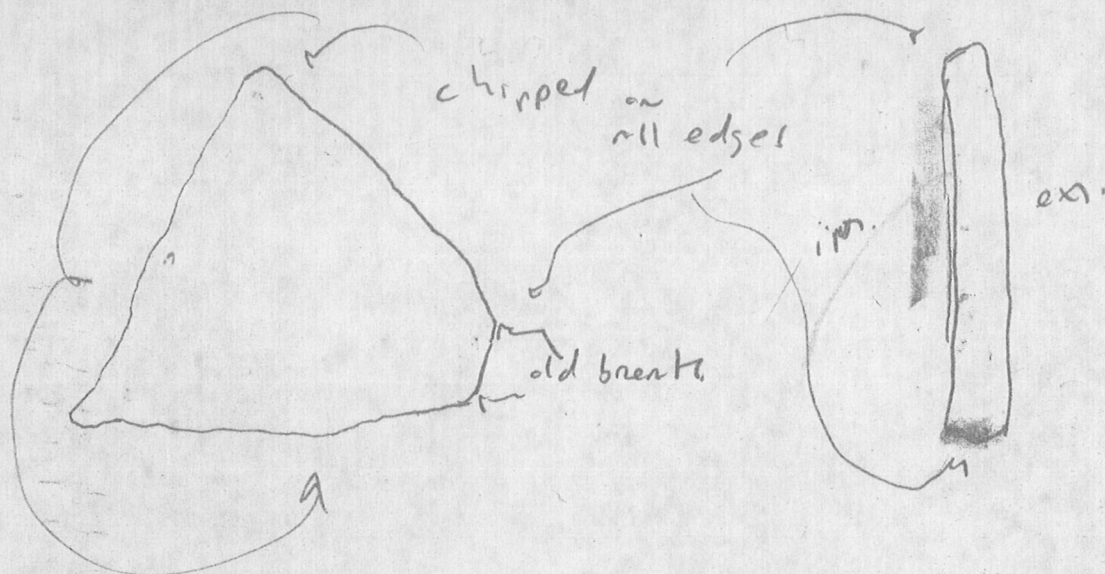 chipped on
all edges
int.
ext.
old break